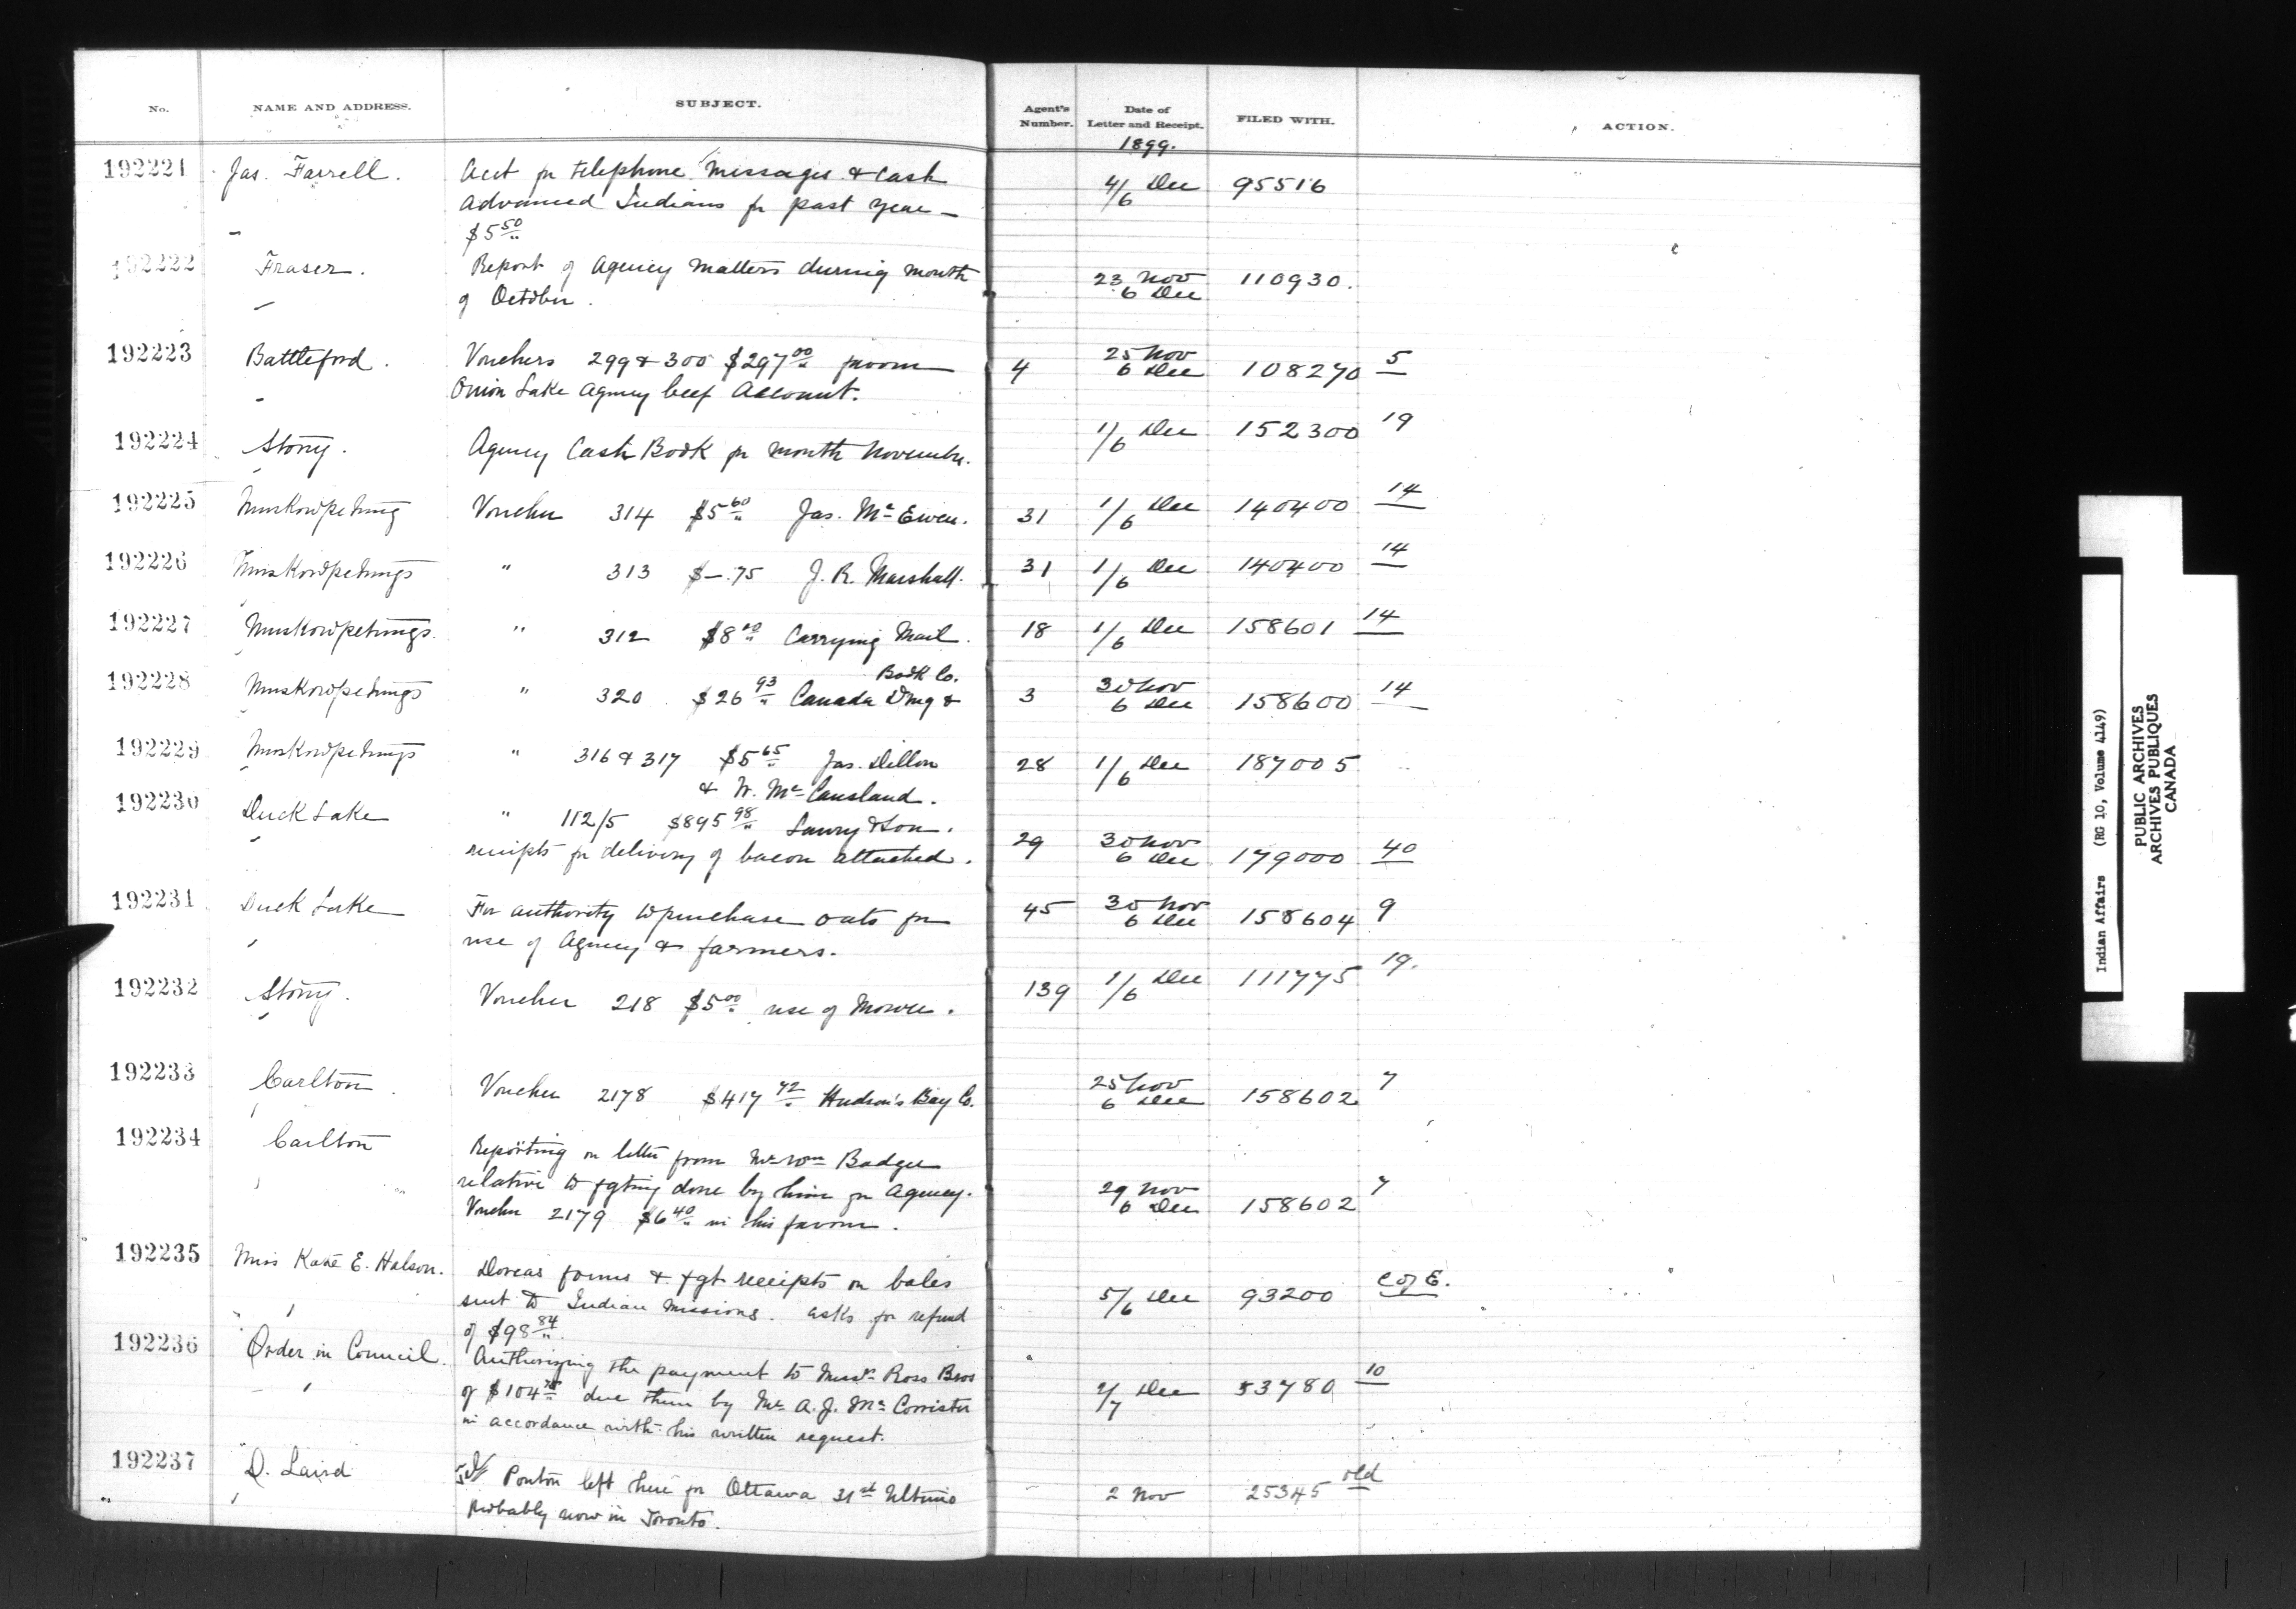 No. NAME AND ADDRESS. SUBJECT. Agent's Number. Date of Letter and Receipt. FILED WITH. ACTION.
1899.
192221 Jas. Farrell. Acct for telephone messages & cash 4/6 Dec 95516
advanced Indians for past year —
$5.50
192222 Fraser. Report of Agency matters during month 23 Nov 110930.
of October. 6 Dec
192223 Battleford. Vouchers 299 & 300 $297.00 favour 4 25 Nov 6 Dec 108270 5
Onion Lake Agency beef Account.
192224 Stony. Agency Cash Book for month November. 1/6 Dec 152300 19
192225 Muskowpetung Voucher 314 $5.60 Jas. McEwen. 31 1/6 Dec 140400 14
192226 Muskowpetungs " 313 $—.75 J. R. Marshall. 31 1/6 Dec 140400 14
192227 Muskowpetungs. " 312 $8.10 Carrying Mail. 18 1/6 Dec 158601 14
Book Co.
192228 Muskowpetungs " 320 $26.93 Canada Drug & 3 30 Nov 6 Dec 158600 14
192229 Muskowpetungs " 316 & 317 $5.65 Jas. Dillon 28 1/6 Dec 187005
& W. McCausland.
192230 Duck Lake " 112/5 $895.98 Lawry & Son.
receipts for delivery of bacon attached. 29 30 Nov 6 Dec 179000 40
192231 Duck Lake For authority to purchase oats for 45 30 Nov 6 Dec 158604 9
use of Agency & farmers.
192232 Stony. Voucher 218 $5.00 use of Mower. 139 1/6 Dec 111775 19.
192233 Carlton. Voucher 2178 $417.72 Hudson's Bay Co. 25 Nov 6 Dec 158602 7
192234 Carlton Reporting on letter from Mr Wm Badger
relative to fgting done by him for Agency. 29 Nov 7
Voucher 2179 $6.40 in his favour. 6 Dec 158602
192235 Miss Kate E. Halson. Dorcas forms & fgt receipts on bales C of E.
sent to Indian missions. asks for refund 5/6 Dec 93200
of $98.84.
192236 Order in Council. Authorizing the payment to Messrs Ross Bros 10
of $104.75 due them by Mr A. J. McCorrister 2/7 Dec 53780
in accordance with his written request.
192237 D. Laird Ponton left here for Ottawa 31st Ultimo 2 Nov 25345 old
probably now in Toronto.
Indian Affairs (RG 10, Volume 4149)
PUBLIC ARCHIVES
ARCHIVES PUBLIQUES
CANADA